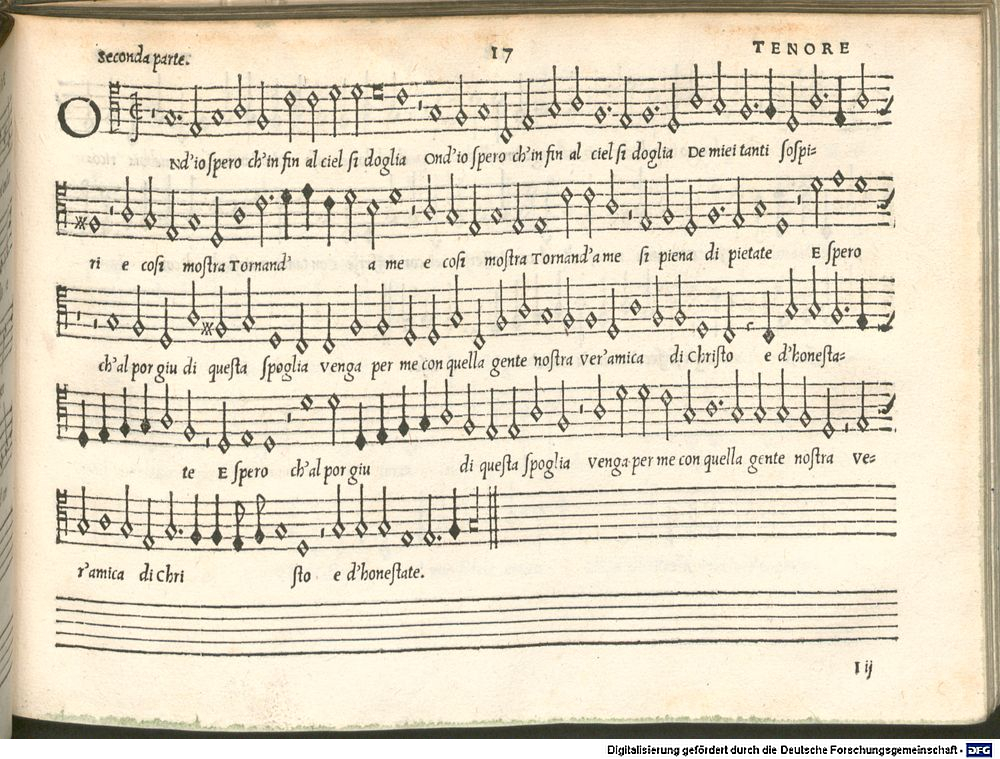 Seconda parte. 17 TENORE
ONd'io spero ch'in fin al ciel si doglia Ond'io spero ch'in fin al ciel si doglia De miei tanti sospi=
ri e cosi mostra Tornand' a me e cosi mostra Tornand'a me si piena di pietate E spero
ch'al por giu di questa spoglia venga per me con quella gente nostra ver'amica di Christo e d'honesta=
te E spero ch'al por giu di questa spoglia venga per me con quella gente nostra ve=
r'amica di Chri sto e d'honestate.
I ij
Digitalisierung gefördert durch die Deutsche Forschungsgemeinschaft - DFG